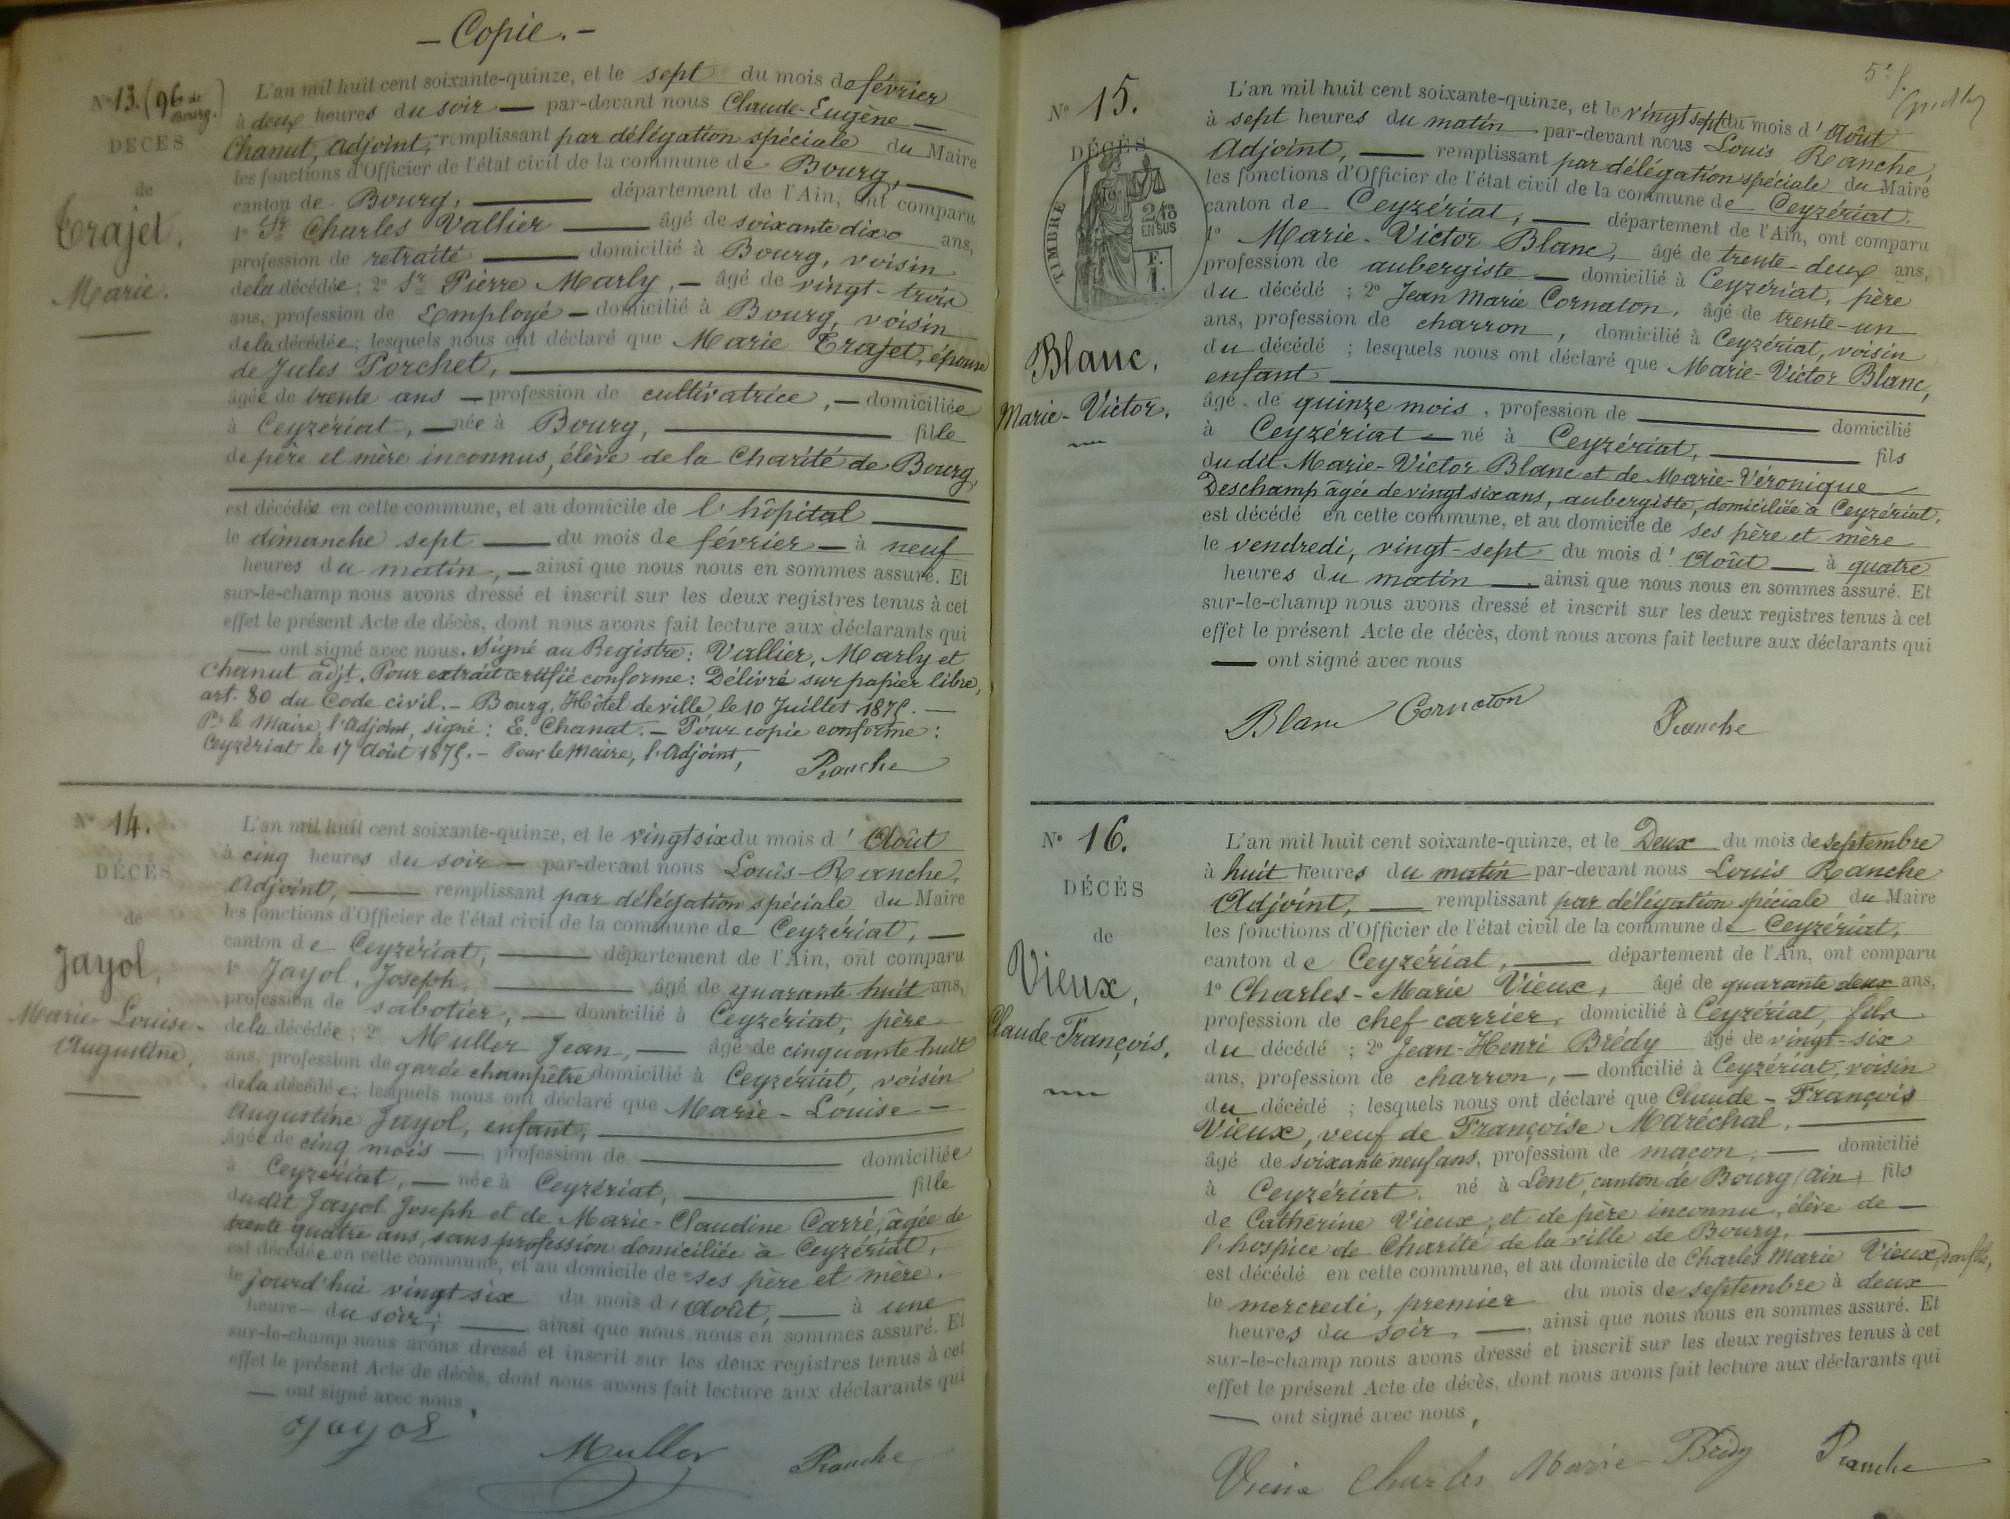 — Copie. —
N° 13. (96 de Bourg.)
DÉCÈS
de
Trajet,
Marie.
L'an mil huit cent soixante-quinze, et le sept du mois de février
à deux heures du soir — par-devant nous Claude-Eugène —
Chanut, Adjoint, remplissant par délégation spéciale du Maire
les fonctions d'Officier de l'état civil de la commune de Bourg,
canton de Bourg, département de l'Ain, ont comparu
1° Sr Charles Vallier âgé de soixante dix ans,
profession de retraité domicilié à Bourg, voisin
de la décédée; 2° Sr Pierre Marly, — âgé de vingt-trois
ans, profession de Employé — domicilié à Bourg, voisin
de la décédée; lesquels nous ont déclaré que Marie Trajet, épouse
de Jules Porchet,
âgée de trente ans — profession de cultivatrice, — domiciliée
à Ceyzériat, — née à Bourg, fille
de père et mère inconnus, élève de la Charité de Bourg,
est décédée en cette commune, et au domicile de l'hôpital
le dimanche sept du mois de février — à neuf
heures du matin, — ainsi que nous nous en sommes assuré. Et
sur-le-champ nous avons dressé et inscrit sur les deux registres tenus à cet
effet le présent Acte de décès, dont nous avons fait lecture aux déclarants qui
— ont signé avec nous. Signé au Registre: Vallier, Marly et
Chanut adjt. Pour extrait certifié conforme: Délivré sur papier libre,
art. 80 du Code civil. — Bourg, Hôtel de ville le 10 Juillet 1875. —
Pr le Maire, l'Adjoint, signé: E. Chanut. — Pour copie conforme:
Ceyzériat le 17 Août 1875. — Pour le Maire, l'Adjoint,
Ranche
N° 14.
DÉCÈS
de
Jayol,
Marie-Louise-
Augustine,
L'an mil huit cent soixante-quinze, et le vingt six du mois d'Août
à cinq heures du soir — par-devant nous Louis-Ranche,
Adjoint, — remplissant par délégation spéciale du Maire
les fonctions d'Officier de l'état civil de la commune de Ceyzériat, —
canton de Ceyzériat, département de l'Ain, ont comparu
1° Jayol, Joseph, âgé de quarante huit ans,
profession de sabotier, — domicilié à Ceyzériat, père
de la décédée; 2° Muller Jean, — âgé de cinquante huit
ans, profession de garde champêtre domicilié à Ceyzériat, voisin
de la décédée; lesquels nous ont déclaré que Marie-Louise-
Augustine Jayol, enfant,
âgée de cinq mois — profession de domiciliée
à Ceyzériat, — née à Ceyzériat, fille
du dit Jayol Joseph et de Marie-Claudine Carré, âgée de
trente quatre ans, sans profession domiciliée à Ceyzériat,
est décédée en cette commune, et au domicile de ses père et mère,
le jourd'hui vingt six du mois d'Août, — à une
heure du soir; — ainsi que nous nous en sommes assuré. Et
sur-le-champ nous avons dressé et inscrit sur les deux registres tenus à cet
effet le présent Acte de décès, dont nous avons fait lecture aux déclarants qui
— ont signé avec nous.
Jayol Muller Ranche
5e f.
N° 15.
DÉCÈS
TIMBRE
2/10
EN SUS
F.
1.
Blanc,
Marie-Victor.
L'an mil huit cent soixante-quinze, et le vingt sept du mois d'Août
à sept heures du matin par-devant nous Louis Ranche,
Adjoint, — remplissant par délégation spéciale du Maire
les fonctions d'Officier de l'état civil de la commune de Ceyzériat.
canton de Ceyzériat, — département de l'Ain, ont comparu
1° Marie-Victor Blanc, âgé de trente-deux ans,
profession de aubergiste — domicilié à Ceyzériat, père
du décédé; 2° Jean Marie Cornaton, âgé de trente-un
ans, profession de charron, domicilié à Ceyzériat, voisin
du décédé; lesquels nous ont déclaré que Marie-Victor Blanc,
enfant
âgé de quinze mois, profession de domicilié
à Ceyzériat — né à Ceyzériat, fils
du dit Marie-Victor Blanc et de Marie-Véronique
Deschamp âgée de vingt six ans, aubergiste, domiciliée à Ceyzériat.
est décédé en cette commune, et au domicile de ses père et mère
le vendredi, vingt-sept du mois d'Août — à quatre
heures du matin — ainsi que nous nous en sommes assuré. Et
sur-le-champ nous avons dressé et inscrit sur les deux registres tenus à cet
effet le présent Acte de décès, dont nous avons fait lecture aux déclarants qui
— ont signé avec nous
Blanc Cornaton Ranche
N° 16.
DÉCÈS
de
Vieux,
Claude-François,
L'an mil huit cent soixante-quinze, et le Deux du mois de septembre
à huit heures du matin par-devant nous Louis Ranche
Adjoint, — remplissant par délégation spéciale du Maire
les fonctions d'Officier de l'état civil de la commune de Ceyzériat,
canton de Ceyzériat, — département de l'Ain, ont comparu
1° Charles-Marie Vieux, âgé de quarante deux ans,
profession de chef carrier, domicilié à Ceyzériat, fils
du décédé; 2° Jean-Henri Brédy âgé de vingt-six
ans, profession de charron, — domicilié à Ceyzériat, voisin
du décédé; lesquels nous ont déclaré que Claude-François
Vieux, veuf de Françoise Maréchal,
âgé de soixante neuf ans, profession de maçon, — domicilié
à Ceyzériat, né à Lent, canton de Bourg (Ain) fils
de Catherine Vieux, et de père inconnu, élève de —
l'hospice de Charité de la ville de Bourg,
est décédé en cette commune, et au domicile de Charles Marie Vieux, son fils,
le mercredi, premier du mois de septembre à deux
heures du soir, — ainsi que nous nous en sommes assuré. Et
sur-le-champ nous avons dressé et inscrit sur les deux registres tenus à cet
effet le présent Acte de décès, dont nous avons fait lecture aux déclarants qui
— ont signé avec nous,
Vieux Charles Marie Brédy Ranche